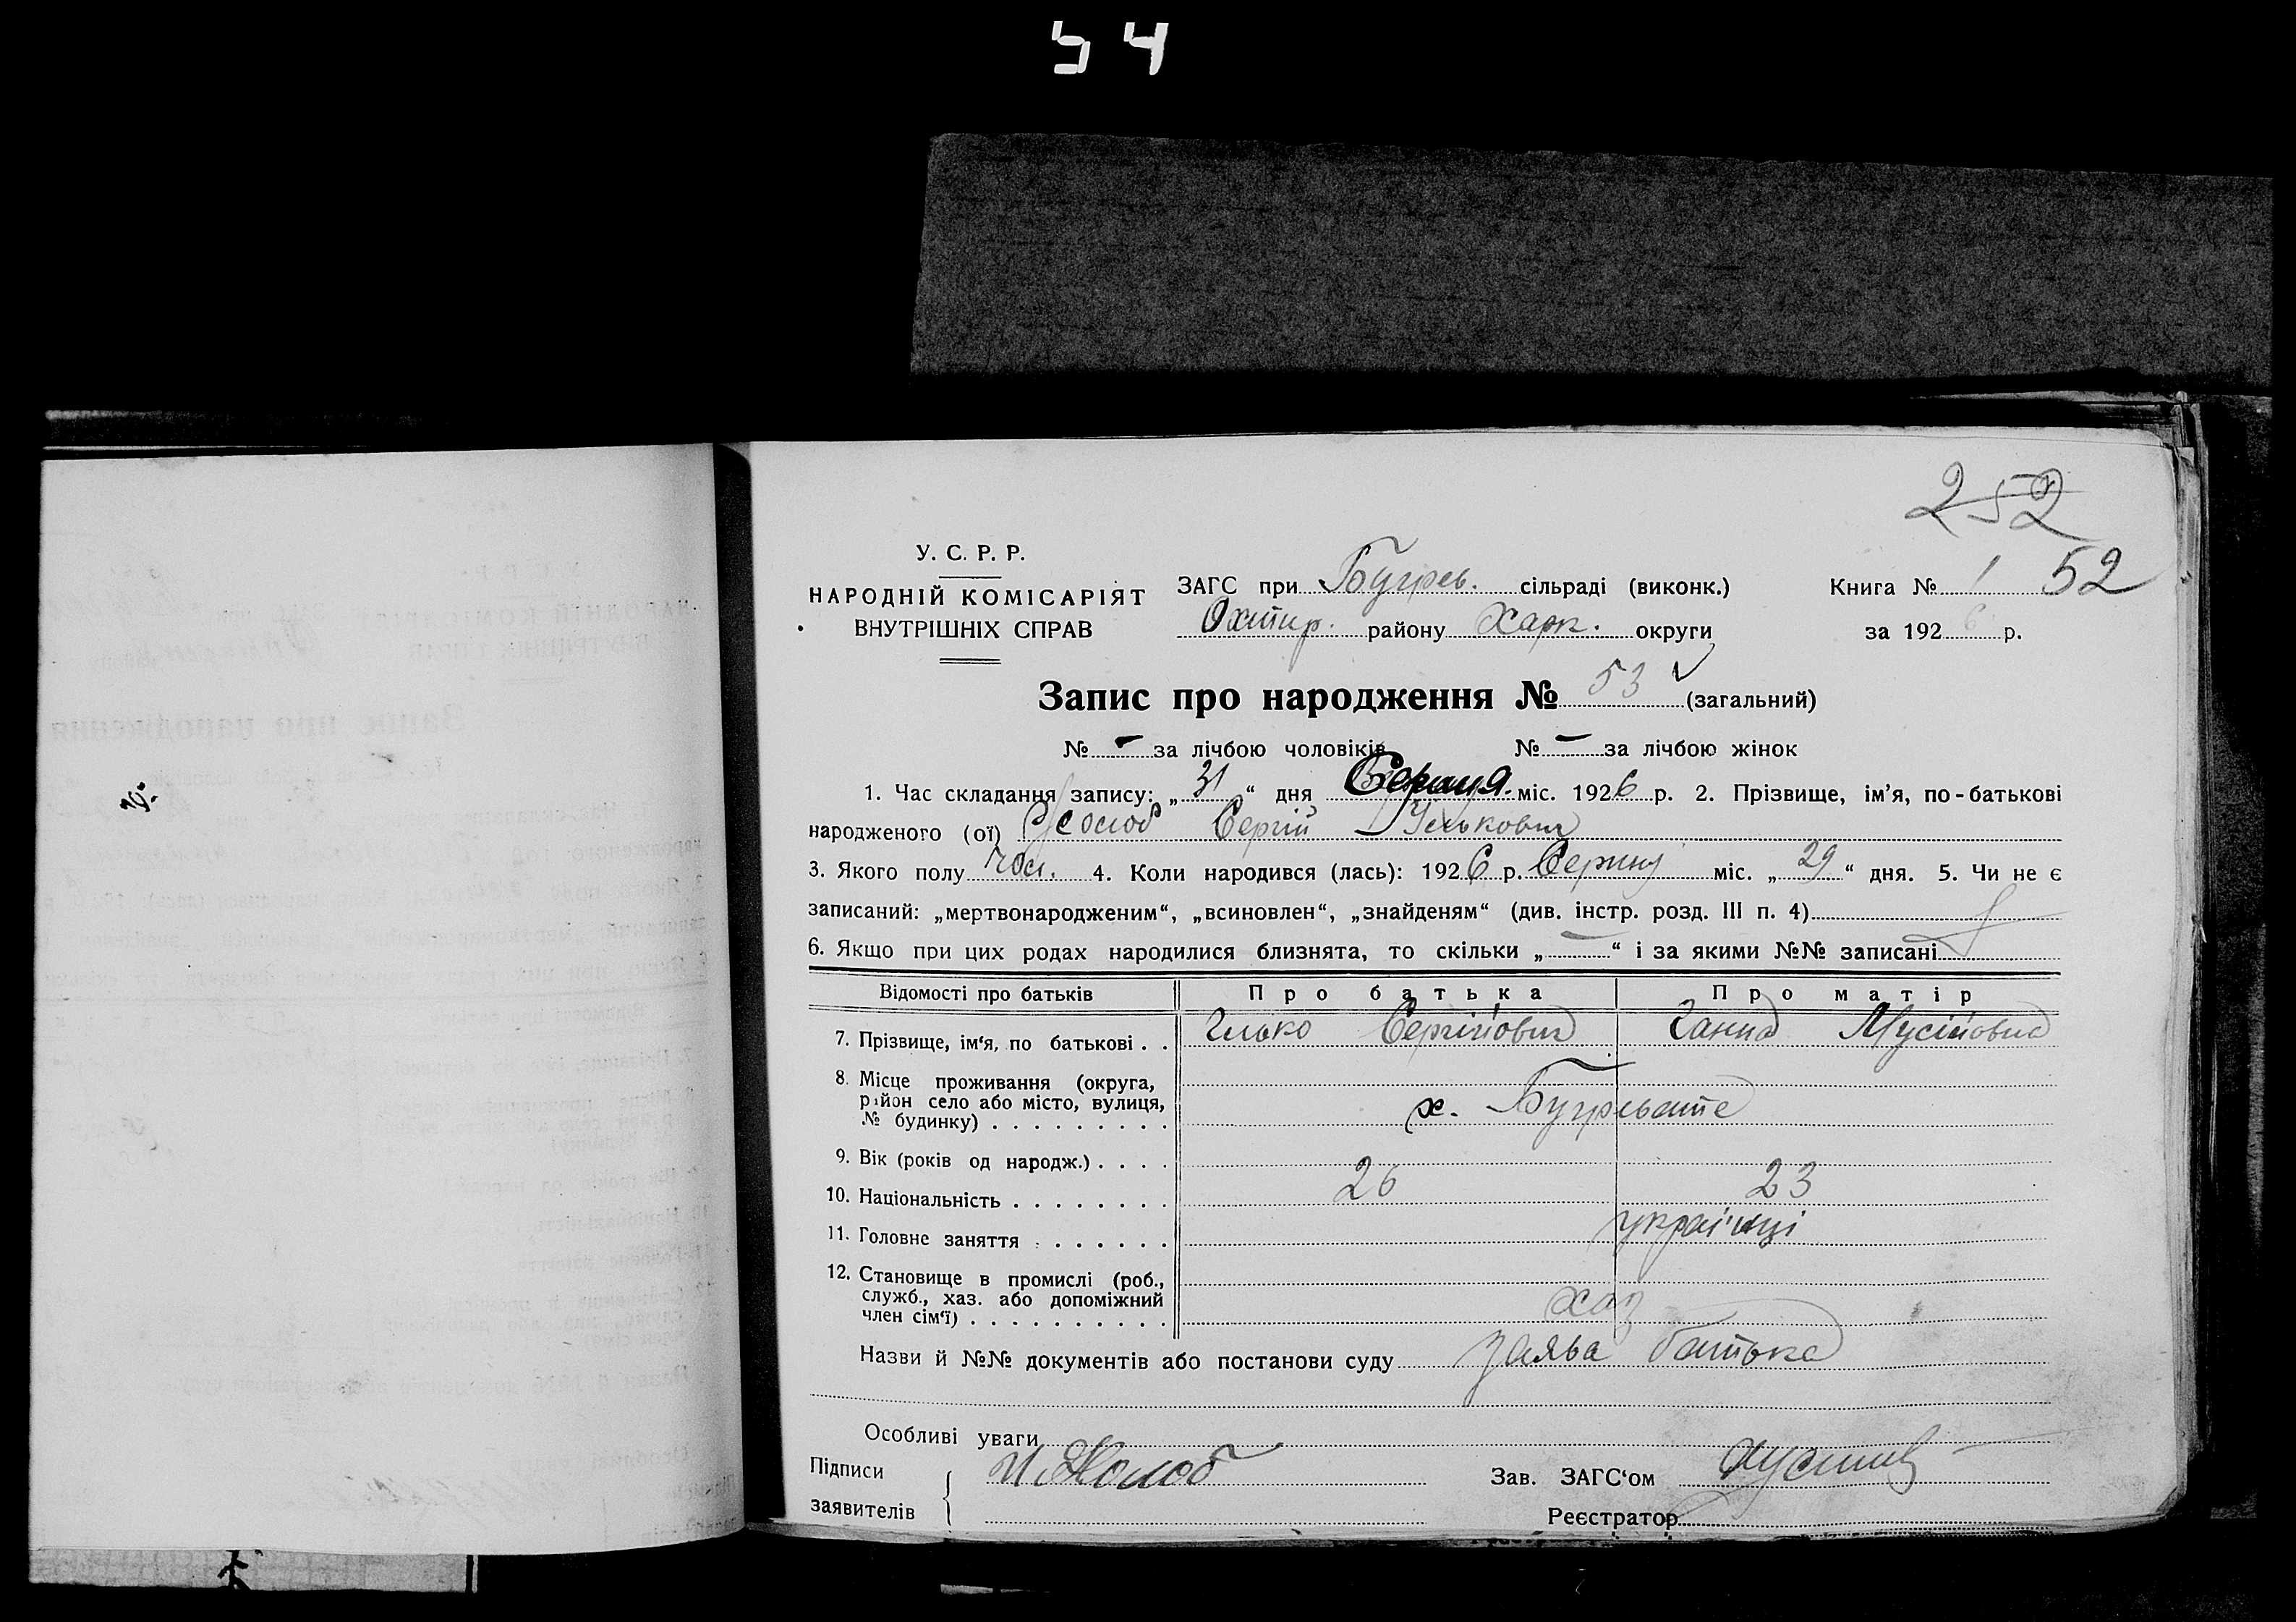 54
252
У. С. Р. Р.
НАРОДНІЙ КОМІСАРІЯТ
ВНУТРІШНІХ СПРАВ
ЗАГС при Бугрев. сільраді (виконк.)
Охтир. району Харк. округи
Книга № 1 52
за 1926 р.
Запис про народження № 53 (загальний)
№ - за лічбою чоловіків № - за лічбою жінок
1. Час складання запису: „31“ дня Серпня міс. 1926 р. 2. Прізвище, ім’я, по-батькові
народженого (ої) Сергій Ількович
3. Якого полу чол. 4. Коли народився (лась): 1926 р. Серпня міс. „29“ дня. 5. Чи не є
записаний: „мертвонародженим“, „всиновлен“, „знайденям“ (див. інстр. розд. III п. 4)
6. Якщо при цих родах народилися близнята, то скільки „-“ і за якими №№ записані
Відомості про батьків Про батька Про матір
7. Прізвище, ім‘я, по батькові . . Ілько Сергійович Ганна Мусіївна
8. Місце проживання (округа,
район село або місто, вулиця,
№ будинку) . . . . . . . . . х. Бугрьвате
9. Вік (років од народж.) . . . . 26 23
10. Національність . . . . . . . . українці
11. Головне заняття . . . . . . .
12. Становище в промислі (роб.,
служб., хаз. або допоміжний
член сім‘ї) . . . . . . . . . . хаз
Назви й №№ документів або постанови суду заява батька
Особливі уваги
Підписи
заявителів
Зав. ЗАГС‘ом
Реєстратор